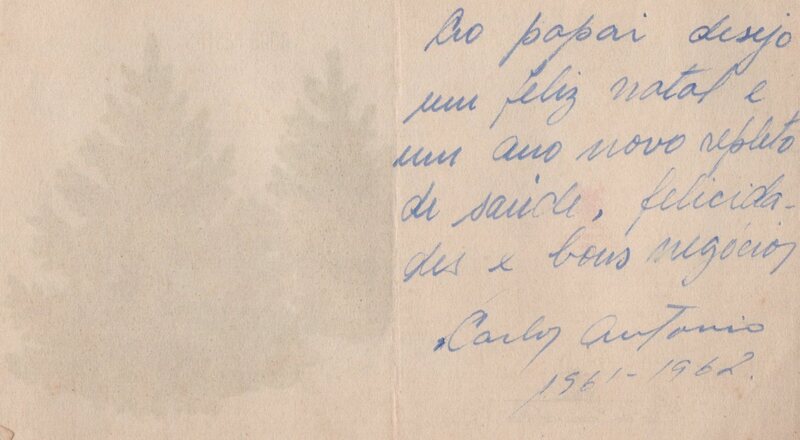 Ao papai desejo
um feliz natal e
um ano novo repleto
de saúde, felicida-
des e bons negócios
Carlos Antonio
1961-1962.